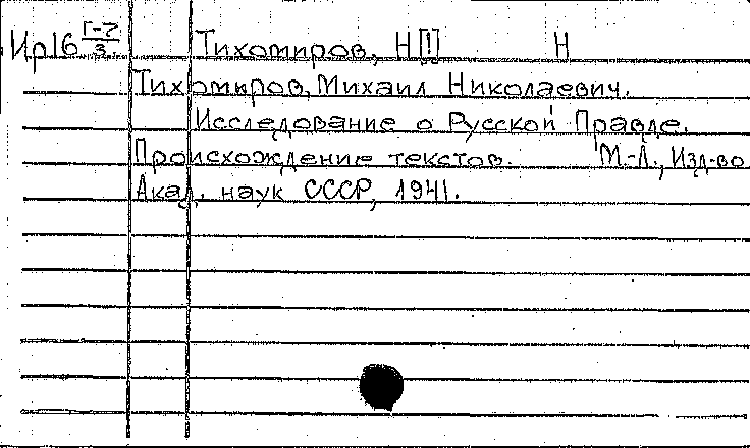 Ир16 Г-7/3 Тихомиров, Н[!] Н
Тихомиров, Михаил Николаевич.
Исследование о Русской Правде.
Происхождение текстов. М.-Л., Изд-во
Акад. наук СССР, 1941.